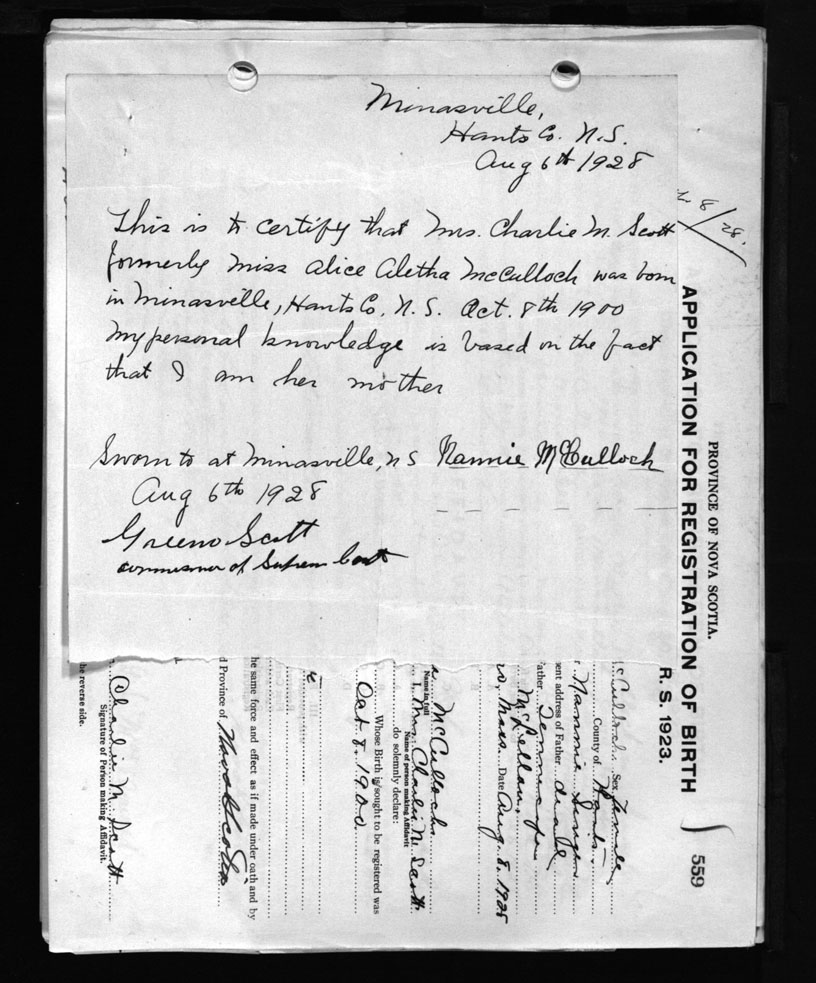 Minasville,
Hants Co. N.S.
Aug 6th 1928
This is to certify that Mrs. Charlie M. Scott
formerly Miss Alice Aletha McCulloch was born
in Minasville, Hants Co. N.S. Oct. 8th 1900
My personal knowledge is based on the fact
that I am her mother
Sworn to at Minasville, NS Nannie McCulloch
Aug 6th 1928
Greeno Scott
commissioner of Supreme Court
8/28.
PROVINCE OF NOVA SCOTIA.
APPLICATION FOR REGISTRATION OF BIRTH
R. S. 1923.
559
Sex Female
County of Hants.
Nannie
ent address of Father dead
ather
McLellan,
Mass. Date Aug. 8. 1928
McCulloch.
Name in full
I, Mrs. Charlie M. Scott
Name of person making Affidavit
do solemnly declare:
Whose Birth is sought to be registered was
Oct. 8, 1900.
he same force and effect as if made under oath and by
d Province of Nova Scotia
Charlie M. Scott
Signature of Person making Affidavit.
he reverse side.